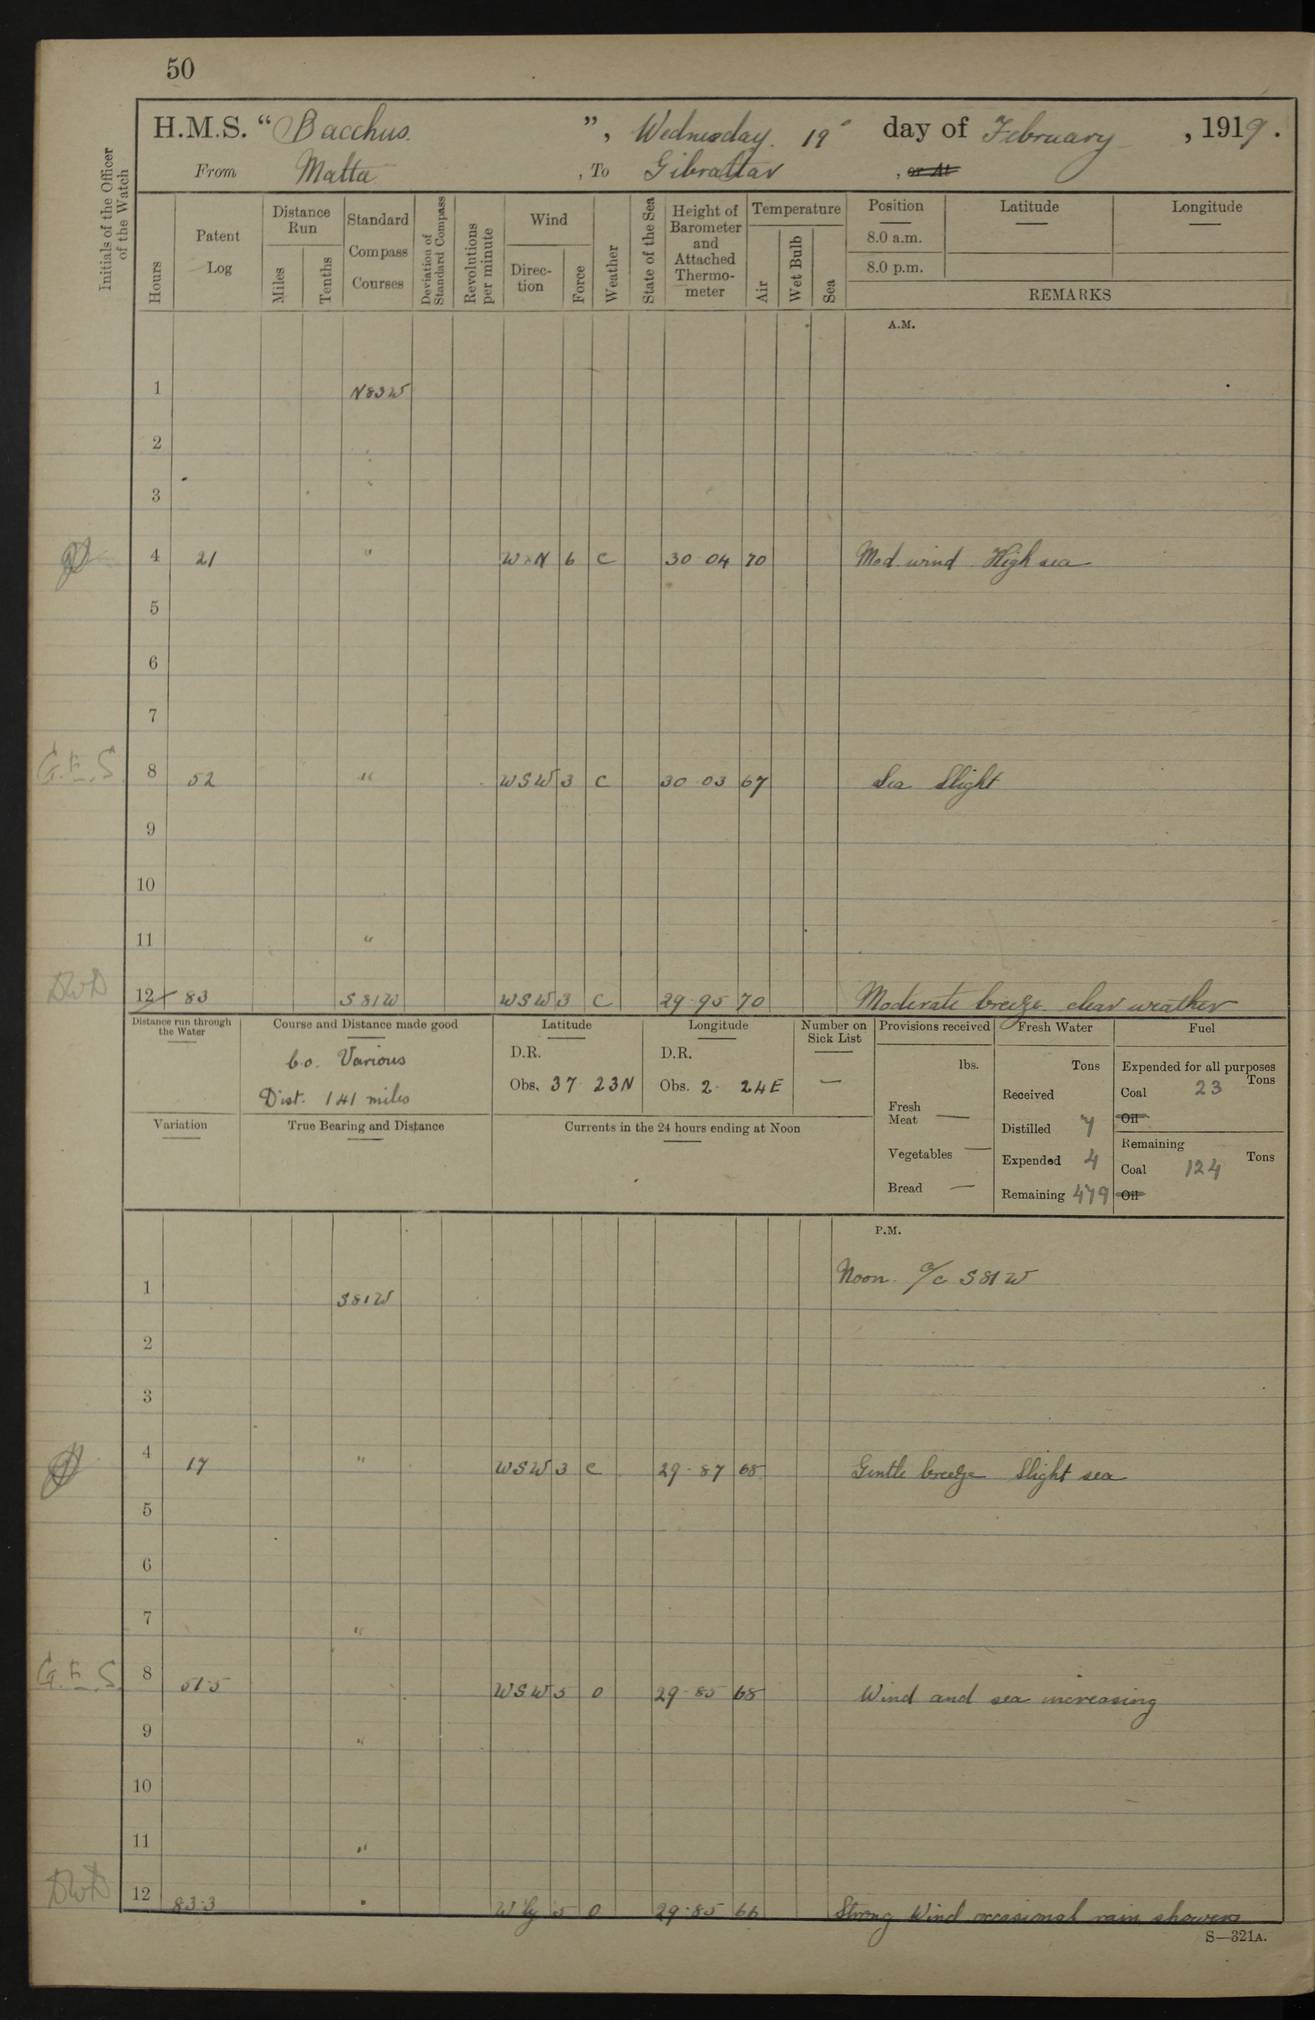 50
H.M.S. “Bacchus.”, Wednesday. 19 day of February, 1919.
From Malta, To Gibraltar, or At
Initials of the Officer of the Watch
Hours
Patent Log
Distance Run
Miles
Tenths
Standard Compass Courses
Deviation of Standard Compass
Revolutions per minute
Wind
Direc-tion
Force
Weather
State of the Sea
Height of Barometer and Attached Thermo-meter
Temperature
Air
Wet Bulb
Sea
Position
Latitude
Longitude
8.0 a.m.
8.0 p.m.
REMARKS
A.M.
1 N83W
2
3
4 21 " W×N 6 C 30 04 70 Mod wind High sea
5
6
7
G.E.S. 8 52 " WSW 3 C 30 03 67 Sea Slight
9
10
11 "
DWD 12 83 S81W WSW 3 C 29.95 70 Moderate breeze clear weather
Distance run through the Water
Course and Distance made good
Co. Various
Dist. 141 miles
Latitude
D.R.
Obs. 37 23N
Longitude
D.R.
Obs. 2 24E
Number on Sick List
—
Provisions received
lbs.
Fresh Meat —
Vegetables —
Bread —
Fresh Water
Tons
Received
Distilled 7
Expended 4
Remaining 479
Fuel
Expended for all purposes
Tons
Coal 23
Oil
Remaining
Tons
Coal 124
Oil
Variation
True Bearing and Distance
Currents in the 24 hours ending at Noon
P.M.
Noon. a/c S81W
1 S81W
2
3
4 17 " WSW 3 C 29.87 68 Gentle breeze Slight sea
5
6
7 "
G.E.S. 8 51.5 WSW 5 O 29.85 68 Wind and sea increasing
9 "
10
11 "
DWD 12 83.3 " W'ly 5 O 29.85 66 Strong Wind occasional rain showers
S—321A.